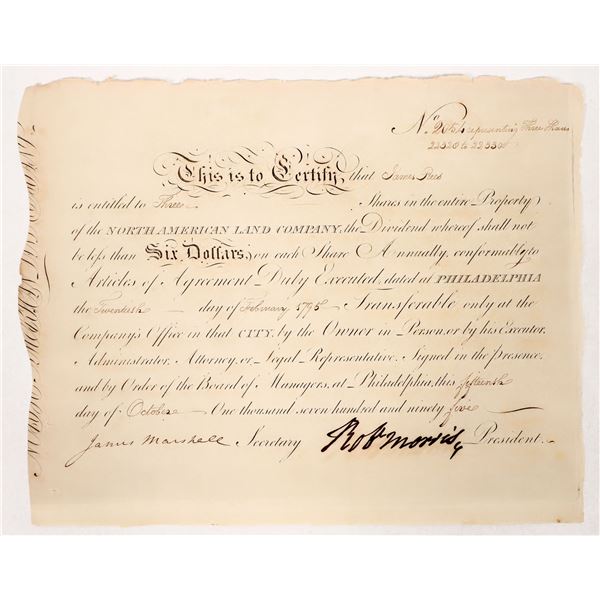 No. representing Three Shares
This is to Certify, that James Rees
is entitled to Three Shares in the entire Property
of the NORTH AMERICAN LAND COMPANY, the Dividend whereof shall not
be less than Six Dollars, on each Share Annually, conformably to
Articles of Agreement Duly Executed, dated at PHILADELPHIA
the Twentieth day of February 1795 Transferable only at the
Company's Office in that CITY, by the Owner in Person, or by his Executor,
Administrator, Attorney, or Legal Representative. Signed in the presence,
and by Order of the Board of Managers, at Philadelphia, this fifteenth
day of October One thousand seven hundred and ninety five
James Marshall Secretary Rob Morris President.